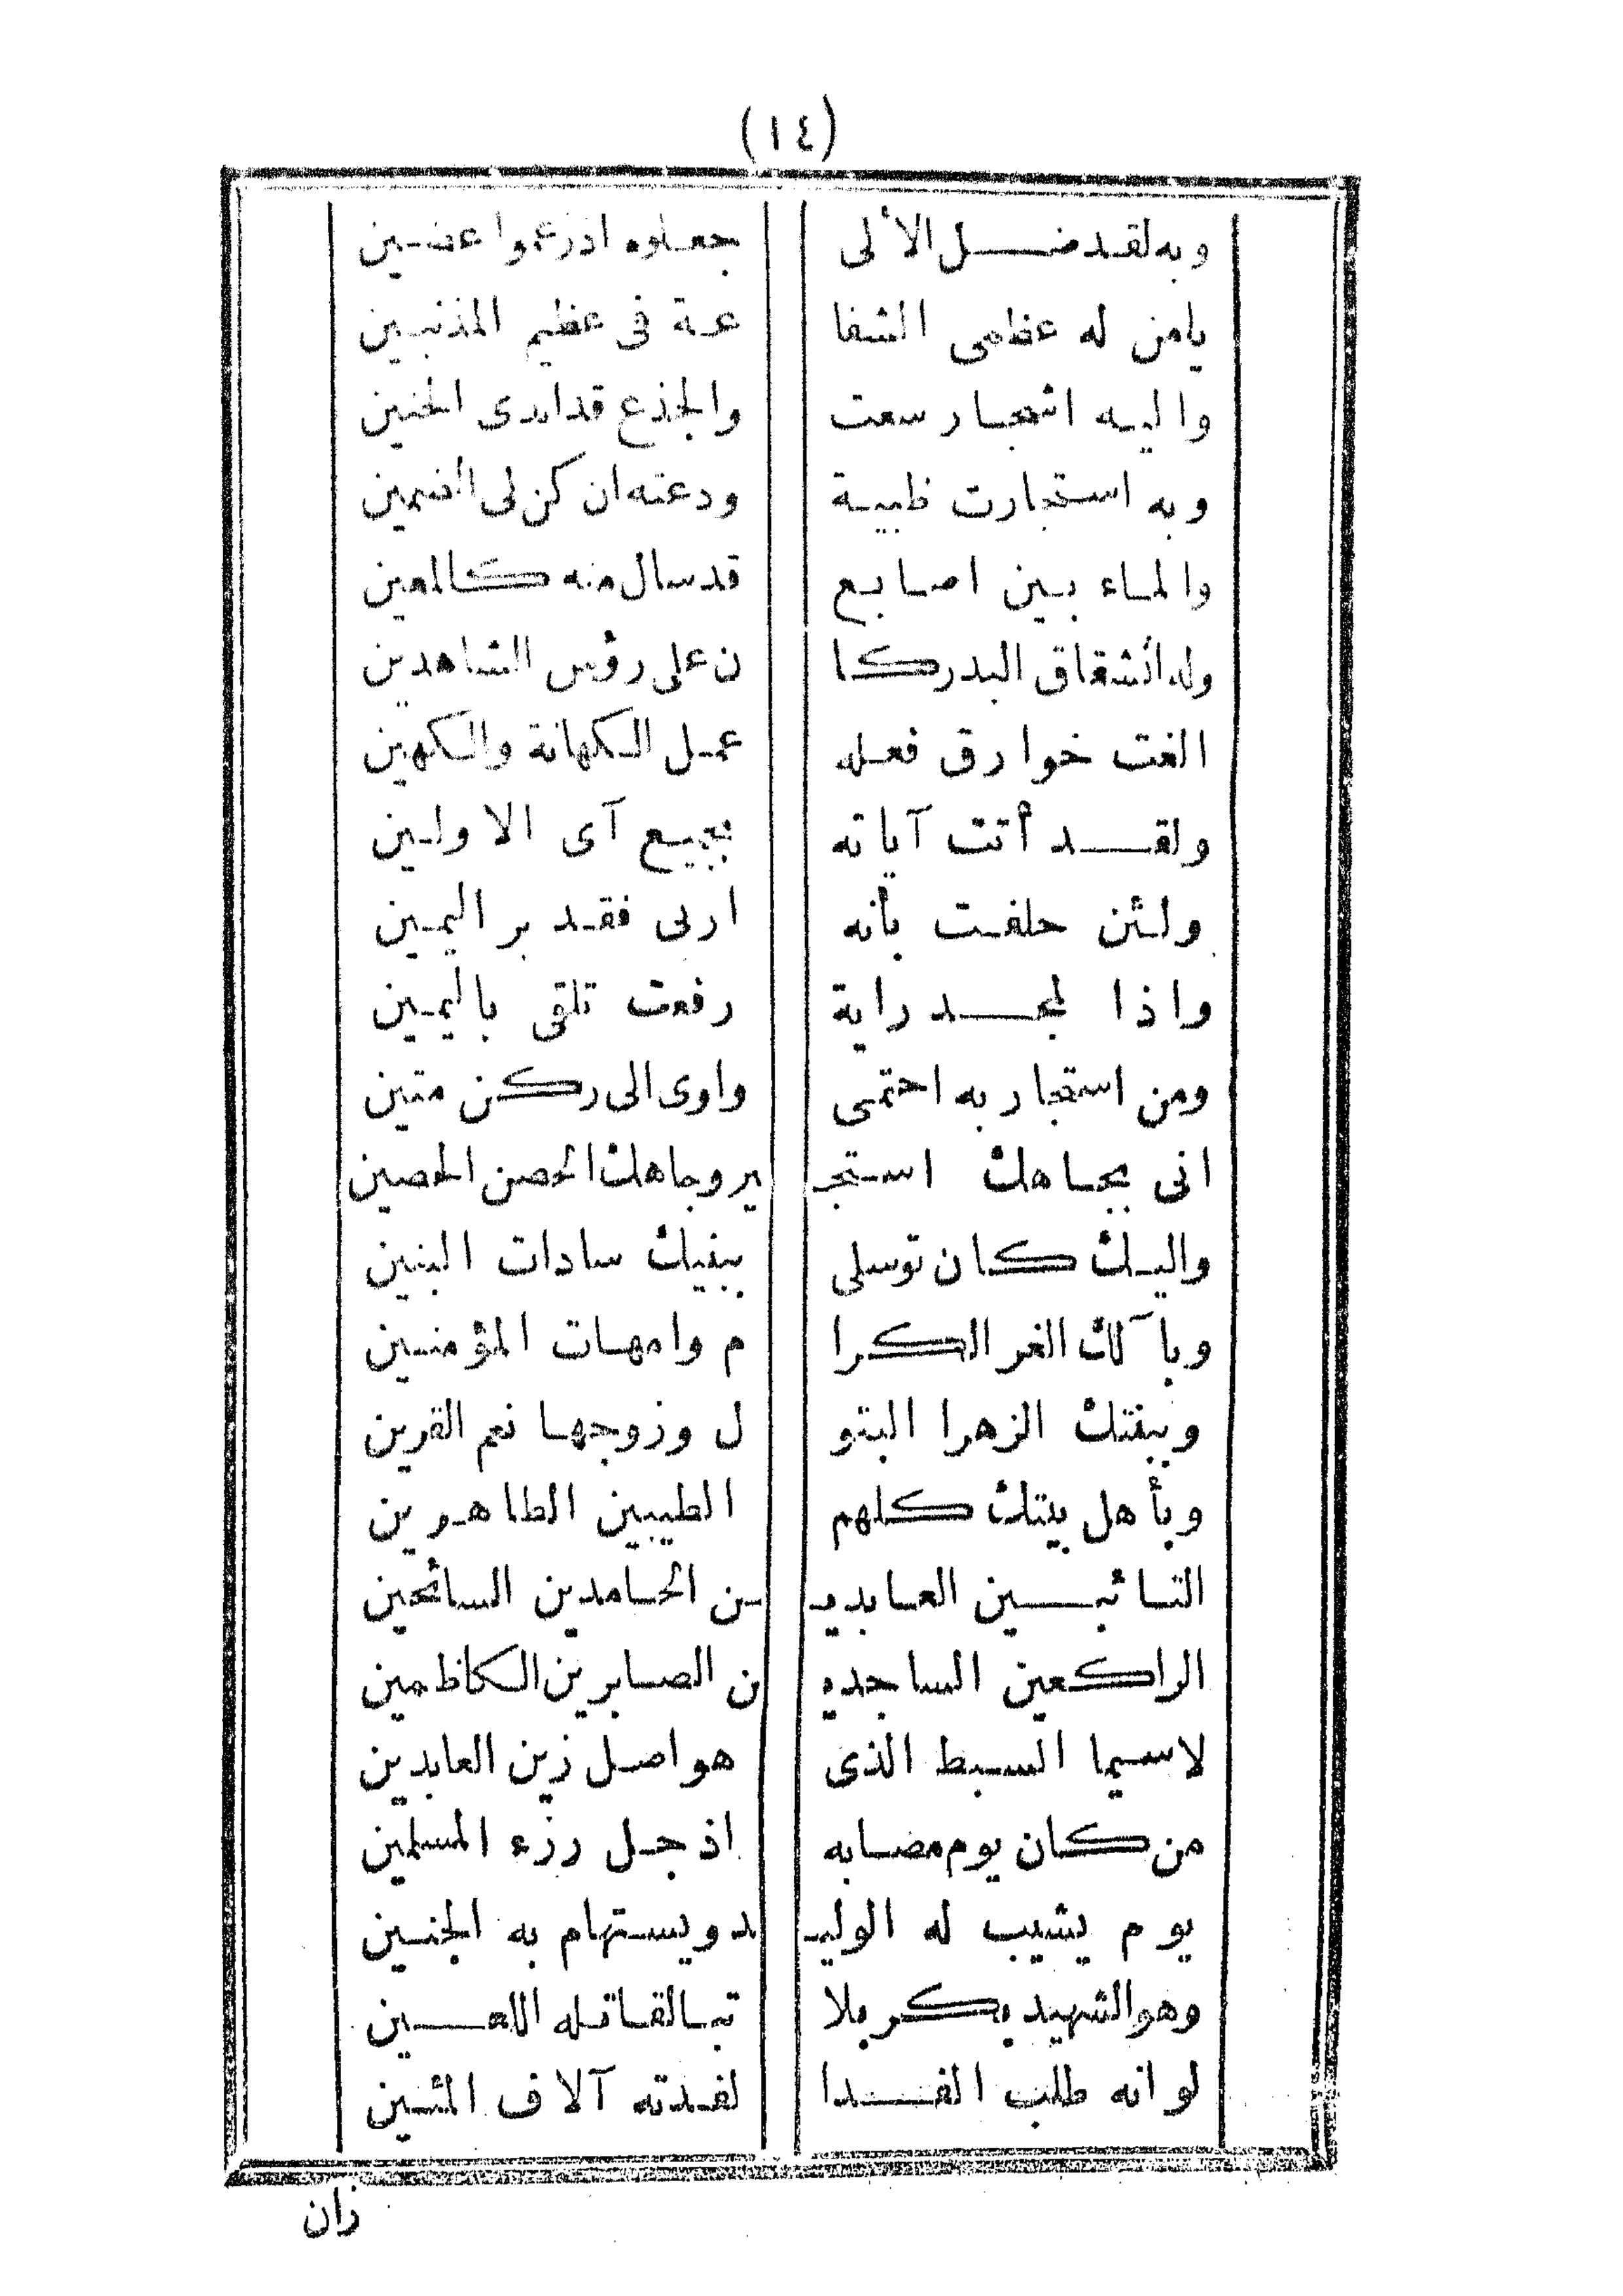 (١٤)
وبه لقد ضل الألى جعلوه اذ زعموا عضين
يا من له عظمى الشفا عة فى عظيم المذنبين
واليه اشجار سعت والجذع قد ابدى الحنين
وبه استجارت ظبية ودعته ان كن لى الضمين
والماء بين اصابع قد سال منه كالمعين
وله انشقاق البدر كا ن على رؤس الشاهدين
الغت خوارق فعله عمل الكهانة والكهين
ولقد أتت آياته بجميع آى الاولين
ولئن حلفت بأنه اربى فقد بر اليمين
واذا لمجد راية رفعت تلقى باليمين
ومن استجار به احتمى واوى الى ركن متين
انى بجاهك استجـ ير وجاهك الحصن الحصين
واليك كان توسلى ببنيك سادات البنين
وبآلك الغر الكرا م وامهات المؤمنين
وببنتك الزهرا البتو ل وزوجها نعم القرين
وبأهل بيتك كلهم الطيبين الطاهرين
التائبين العابديـ ـن الحامدين السائحين
الراكعين الساجديـ ن الصابرين الكاظمين
لاسيما السبط الذى هو اصل زين العابدين
من كان يوم مصابه اذ جل رزء المسلمين
يوم يشيب له الوليـ ـد ويستهام به الجنين
وهو الشهيد بكربلا تبا لقاتله اللعين
لو انه طلب الفدا لفدته آلاف المئين
زان